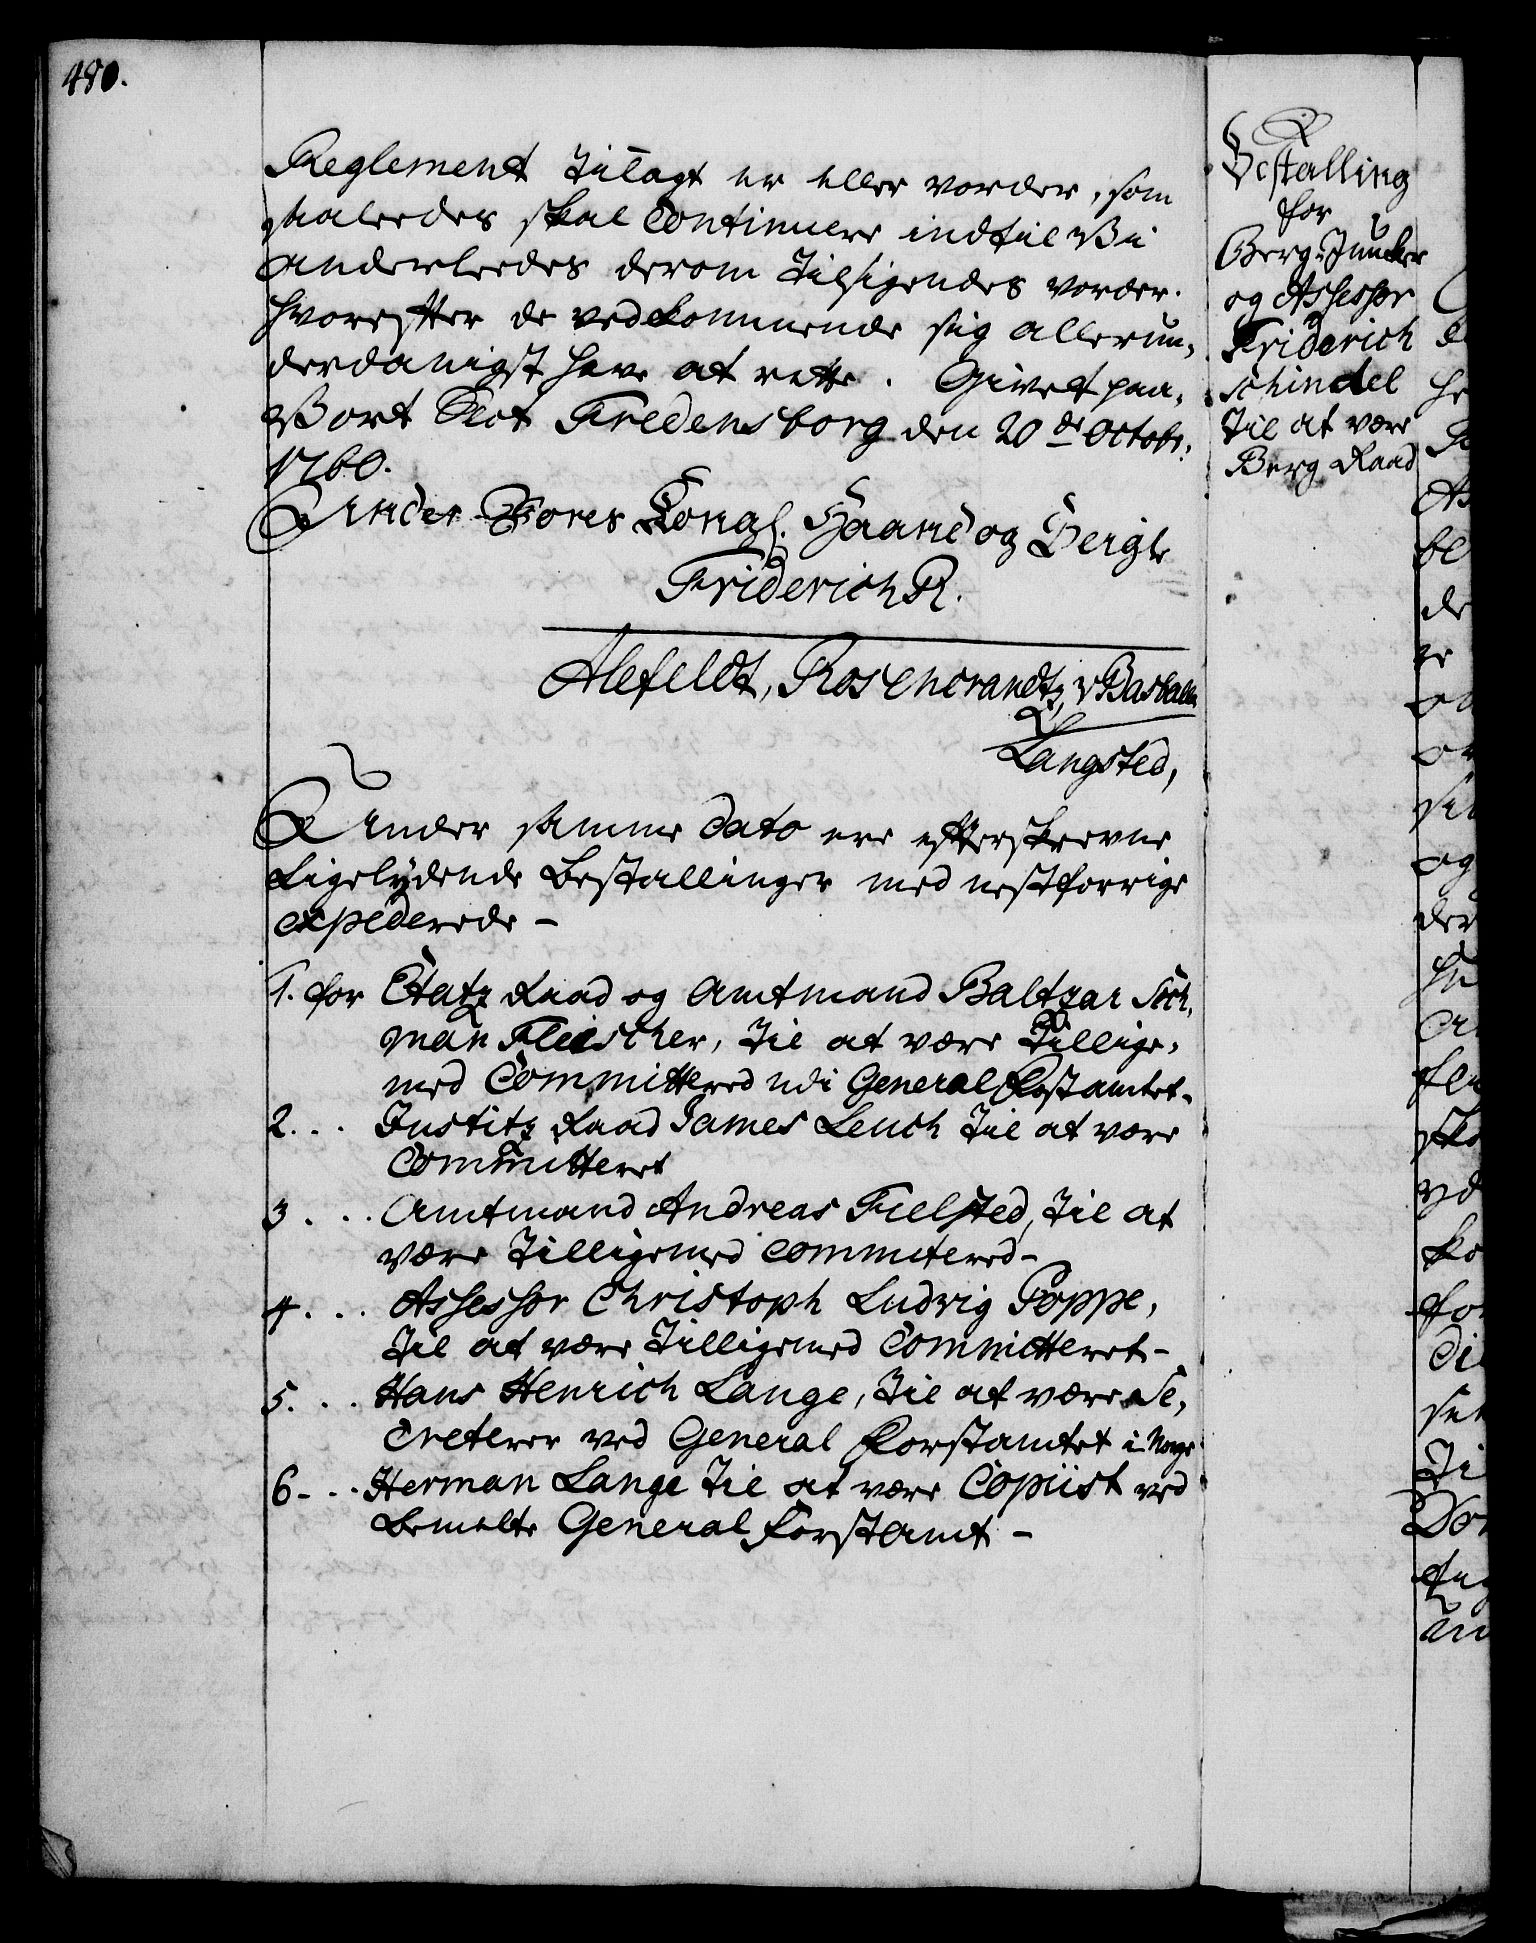 480.
Reglement tillagt er eller vorder, som
saaledes skal Continuere indtil Vi
anderledes derom tilsigendes vorder.
hvorefter de vedkommende sig allerun-
derdanigst have at rette. Givet paa
Vort Slot Fredensborg den 20de Octobr:
1760.
Under Vores Kongl. Haand og Seigl
Friderich R.
Alefeldt, Rosencrandtz, v Basballe
Langsted,
Under samme Dato ere efterskrevne
Ligelydende Bestallinger med nestforrige
expederede –
1. for Etatz Raad og Amtmand Baltzar Sech,
man Fleischer, til at være Tillige,
med Committered udi General Forstamtet.
2. . . Justitz Raad James Leuch til at være
Committeret
3 . . . Amtmand Andreas Fielsted, til at
være Tilligemed Committered –
4 . . . Assessor Christoph Ludvig Poppe,
til at være Tilligemed Committeret –
5. . . Hans Henrich Lange, til at være Se,
creterer ved General Forstamtet i Norge
6 - . . Herman Lange til at være Copiist ved
bemelte General Forstamt –
Bestalling
for
Berg-Juncker
og Assessor
Friderich
Schindel
til at være
Berg Raad